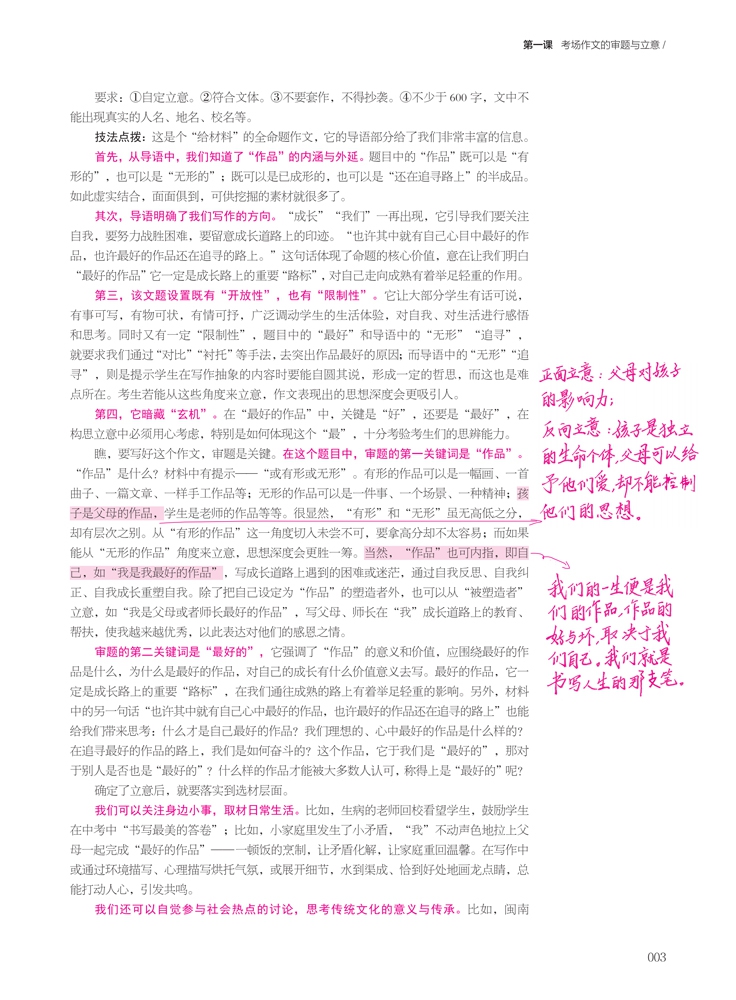 第一课 考场作文的审题与立意 /
要求：①自定立意。②符合文体。③不要套作，不得抄袭。④不少于 600 字，文中不
能出现真实的人名、地名、校名等。
技法点拨：这是个“给材料”的全命题作文，它的导语部分给了我们非常丰富的信息。
首先，从导语中，我们知道了“作品”的内涵与外延。题目中的“作品”既可以是“有
形的”，也可以是“无形的”；既可以是已成形的，也可以是“还在追寻路上”的半成品。
如此虚实结合，面面俱到，可供挖掘的素材就很多了。
其次，导语明确了我们写作的方向。“成长”“我们”一再出现，它引导我们要关注
自我，要努力战胜困难，要留意成长道路上的印迹。“也许其中就有自己心目中最好的作
品，也许最好的作品还在追寻的路上。”这句话体现了命题的核心价值，意在让我们明白
“最好的作品”它一定是成长路上的重要“路标”，对自己走向成熟有着举足轻重的作用。
第三，该文题设置既有“开放性”，也有“限制性”。它让大部分学生有话可说，
有事可写，有物可状，有情可抒，广泛调动学生的生活体验，对自我、对生活进行感悟
和思考。同时又有一定“限制性”，题目中的“最好”和导语中的“无形”“追寻”，
就要求我们通过“对比”“衬托”等手法，去突出作品最好的原因；而导语中的“无形”“追
寻”，则是提示学生在写作抽象的内容时要能自圆其说，形成一定的哲思，而这也是难
点所在。考生若能从这些角度来立意，作文表现出的思想深度会更吸引人。
第四，它暗藏“玄机”。在“最好的作品”中，关键是“好”，还要是“最好”，在
构思立意中必须用心考虑，特别是如何体现这个“最”，十分考验考生们的思辨能力。
瞧，要写好这个作文，审题是关键。在这个题目中，审题的第一关键词是“作品”。
“作品”是什么？材料中有提示——“或有形或无形”。有形的作品可以是一幅画、一首
曲子、一篇文章、一样手工作品等；无形的作品可以是一件事、一个场景、一种精神；孩
子是父母的作品，学生是老师的作品等等。很显然，“有形”和“无形”虽无高低之分，
却有层次之别。从“有形的作品”这一角度切入未尝不可，要拿高分却不太容易；而如果
能从“无形的作品”角度来立意，思想深度会更胜一筹。当然，“作品”也可内指，即自
己，如“我是我最好的作品”，写成长道路上遇到的困难或迷茫，通过自我反思、自我纠
正、自我成长重塑自我。除了把自己设定为“作品”的塑造者外，也可以从“被塑造者”
立意，如“我是父母或者师长最好的作品”，写父母、师长在“我”成长道路上的教育、
帮扶，使我越来越优秀，以此表达对他们的感恩之情。
审题的第二关键词是“最好的”，它强调了“作品”的意义和价值，应围绕最好的作
品是什么，为什么是最好的作品，对自己的成长有什么价值意义去写。最好的作品，它一
定是成长路上的重要“路标”，在我们通往成熟的路上有着举足轻重的影响。另外，材料
中的另一句话“也许其中就有自己心中最好的作品，也许最好的作品还在追寻的路上”也能
给我们带来思考：什么才是自己最好的作品？我们理想的、心中最好的作品是什么样的？
在追寻最好的作品的路上，我们是如何奋斗的？这个作品，它于我们是“最好的”，那对
于别人是否也是“最好的”？什么样的作品才能被大多数人认可，称得上是“最好的”呢？
确定了立意后，就要落实到选材层面。
我们可以关注身边小事，取材日常生活。比如，生病的老师回校看望学生，鼓励学生
在中考中“书写最美的答卷”；比如，小家庭里发生了小矛盾，“我”不动声色地拉上父
母一起完成“最好的作品”——一顿饭的烹制，让矛盾化解，让家庭重回温馨。在写作中
或通过环境描写、心理描写烘托气氛，或展开细节，水到渠成、恰到好处地画龙点睛，总
能打动人心，引发共鸣。
我们还可以自觉参与社会热点的讨论，思考传统文化的意义与传承。比如，闽南
正面立意：父母对孩子
的影响力；
反向立意：孩子是独立
的生命个体，父母可以给
予他们爱，却不能控制
他们的思想。
我们的一生便是我
们的作品，作品的
好与坏，取决于我
们自己。我们就是
书写人生的那支笔。
003